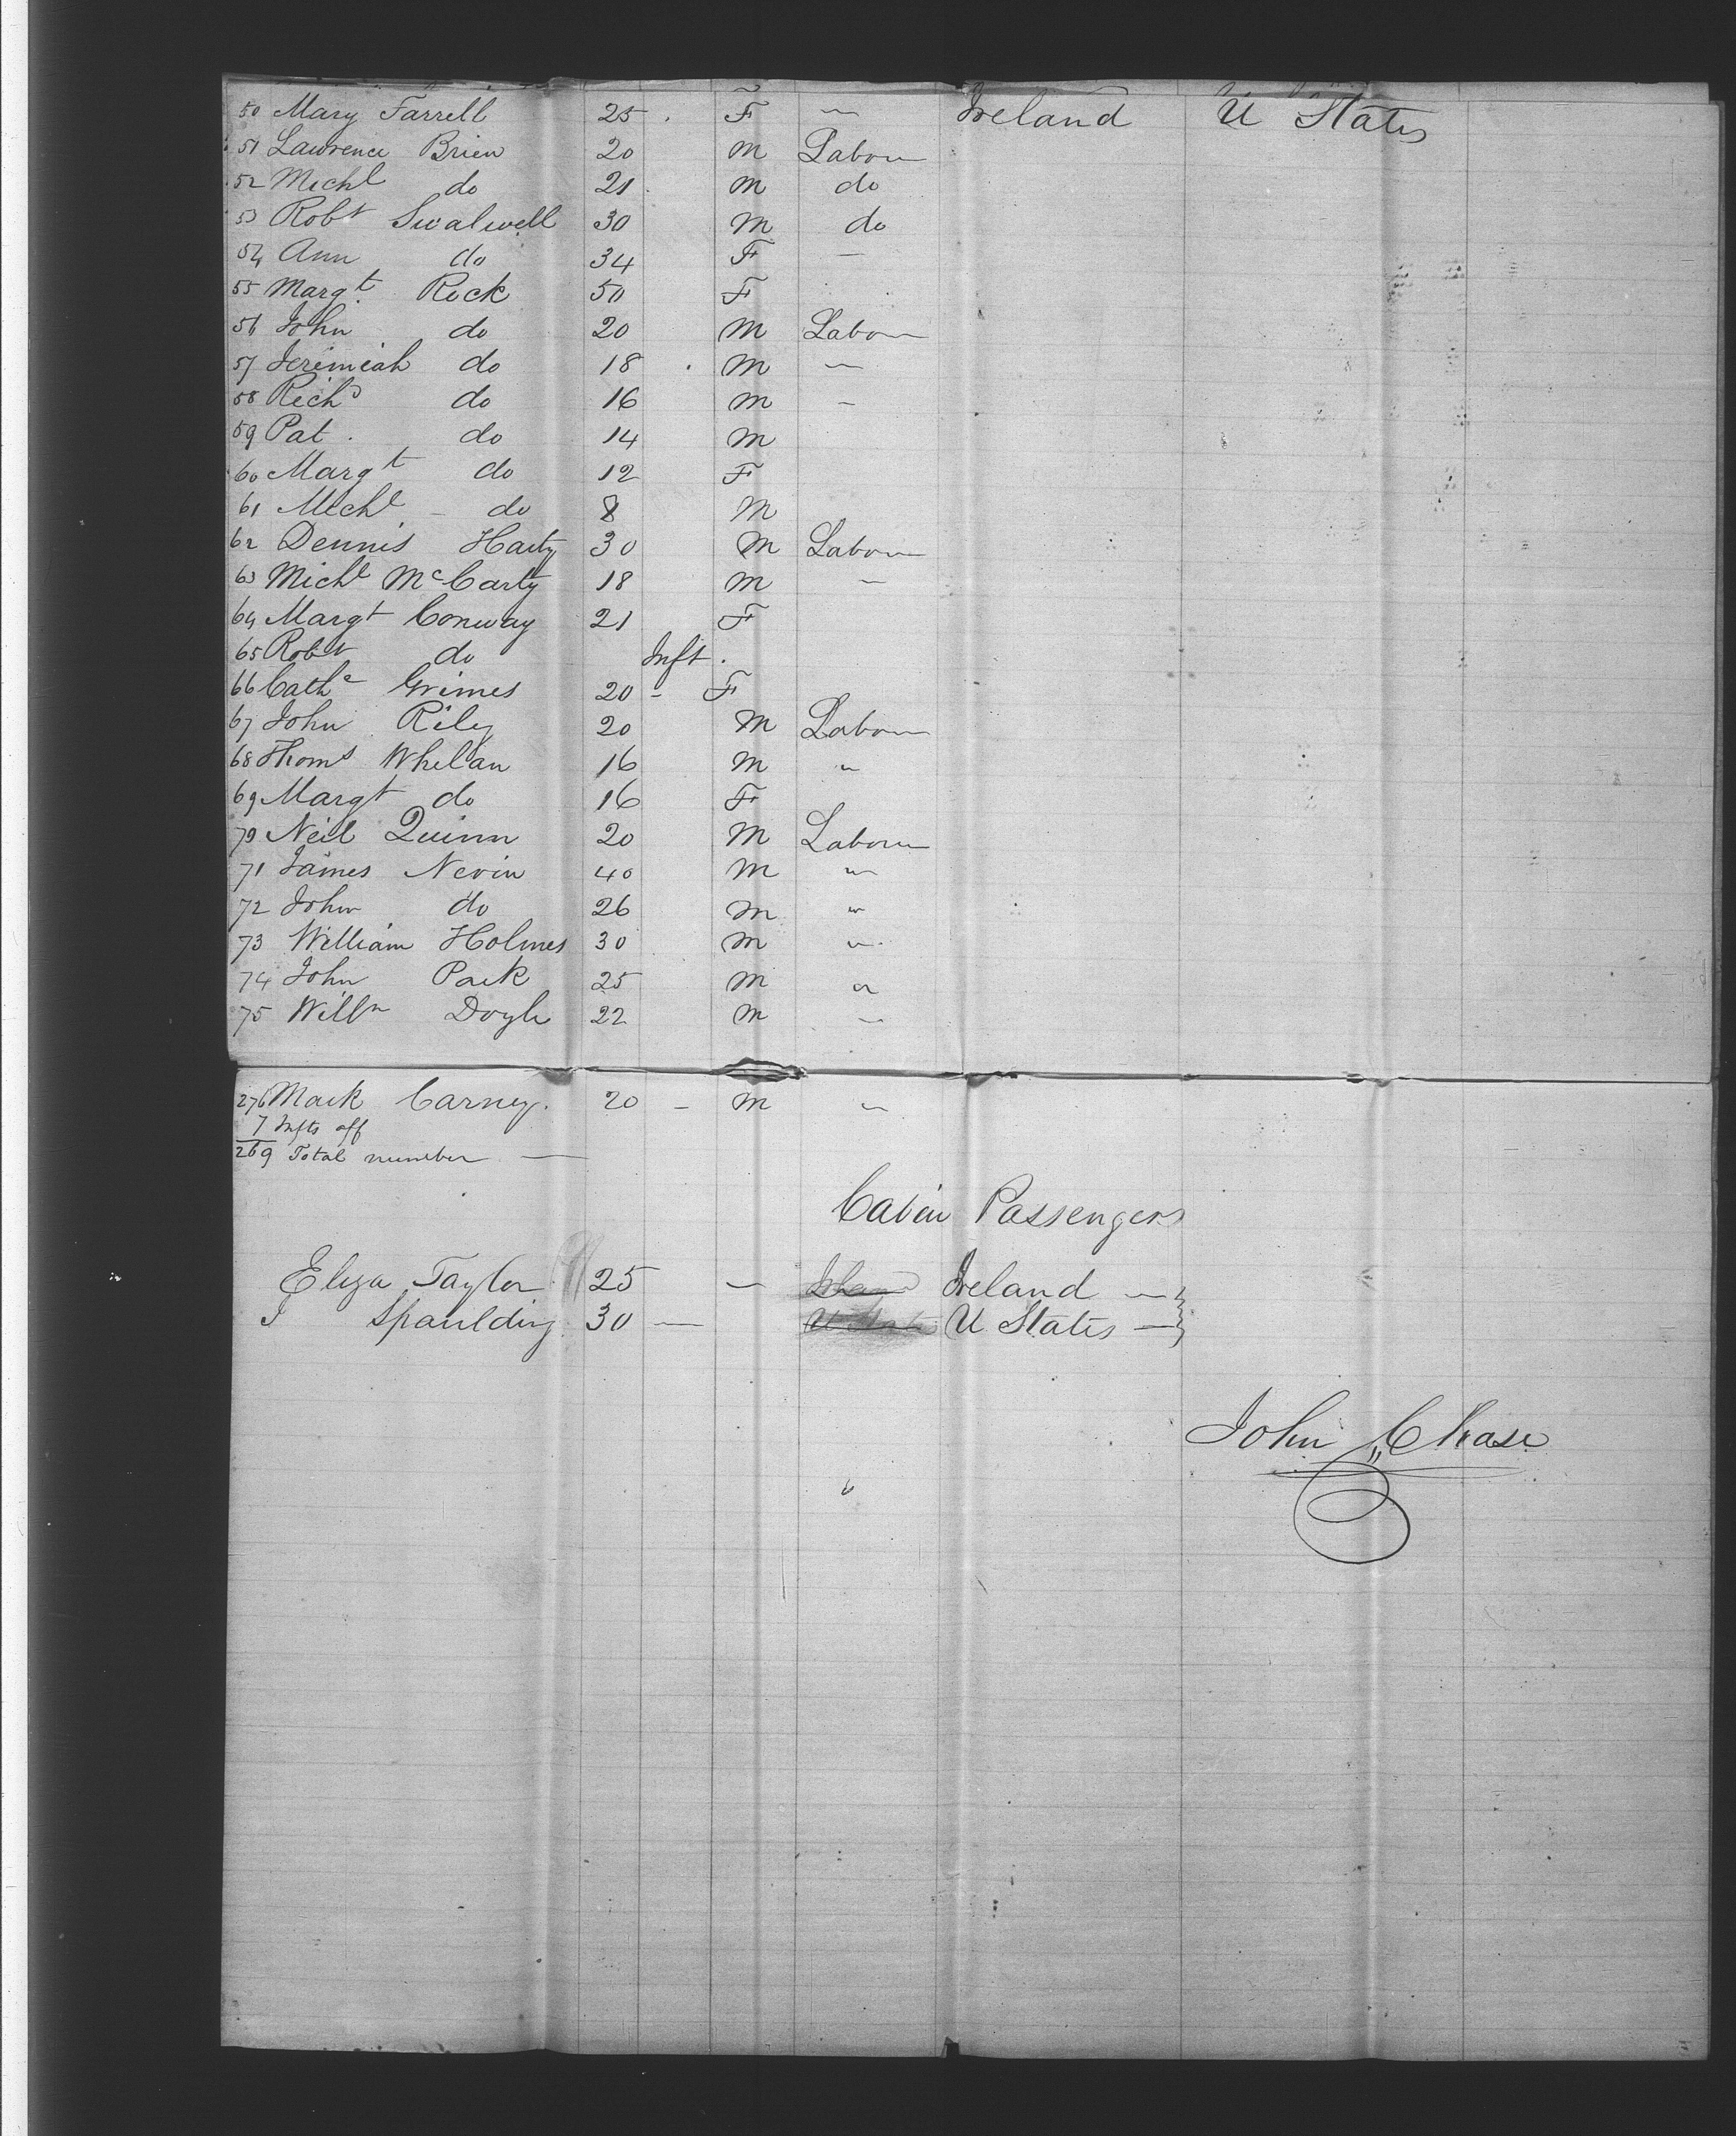 50 Mary Farrell 25 F — Ireland U States
51 Lawrence Brien 20 M Labour
52 Michl do 21 M do
53 Robt Swalwell 30 M do
54 Ann do 34 F —
55 Margt Rock 50 F
56 John do 20 M Labour
57 Jeremiah do 18 M —
58 Richd do 16 M -
59 Pat. do 14 M
60 Margt do 12 F
61 Michl - do 8 M
62 Dennis Harty 30 M Labour
63 Michl McCarty 18 M —
64 Margt Conway 21 F
65 Robt do Inft.
66 Cathe Grimes 20 - F
67 John Riley 20 M Labour
68 Thoms Whelan 16 M "
69 Margt do 16 F
70 Neil Quinn 20 M Labour
71 James Nevin 40 M "
72 John do 26 M "
73 William Holmes 30 M "
74 John Park 25 M "
75 Willm Doyle 22 M "
276 Mark Carney. 20 - M "
7 Infts off
269 Total number —
Cabin Passengers
Eliza Taylor 25 — Ireland —
J Spaulding 30 — U States U States —
John Chase